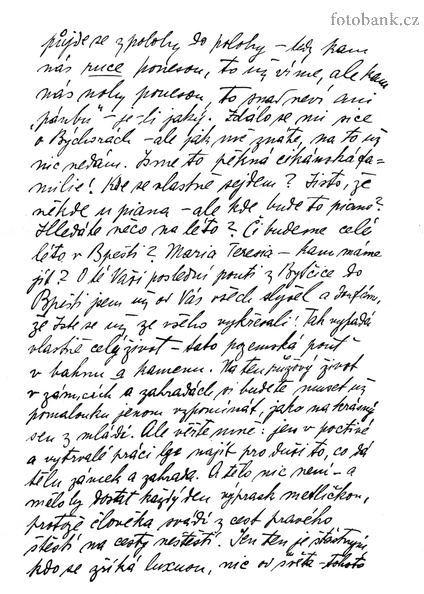 fotobank.cz
půjde se z polohy do polohy – tedy kam
nás ruce ponesou, to už víme, ale kam
nás nohy ponesou, to snad neví ani
"pánbů" – je-li jaký. Zdálo se mi sice
o Býchorách – ale jak mě znáte, na to už
nic nedám. Jsme to pěkná cikánská fa-
milie! Kde se vlastně sejdem? Jisto, že
někde u piana – ale kde bude to piano?
Hledáte něco na léto? Či budeme celé
léto v Bpešti? Maria Teresia – kam máme
jít? O té Vaší poslední pouti z Byšice do
Bpešti jsem už od Vás všech slyšel a doufám,
že jste se už ze všeho vykřesali! Tak vypadá
vlastně celý život – tato pozemská pouť
v bahnu a kamenu. Na ten růžový život
v zámcích a zahradách si budete muset už
pomalounku jenom vzpomínat, jako na krásný
sen z mládí. Ale věřte mně: jen v poctivé
a vytrvalé práci lze najít pro duši to, co dá
tělu zámek a zahrada. A tělo nic není – a
mělo by dostat každý den výprask metličkou,
protože člověka svádí z cest pravého
štěstí na cesty neštěstí. Jen ten je šťastný,
kdo se zříká luxusu, nic od světa – tohoto